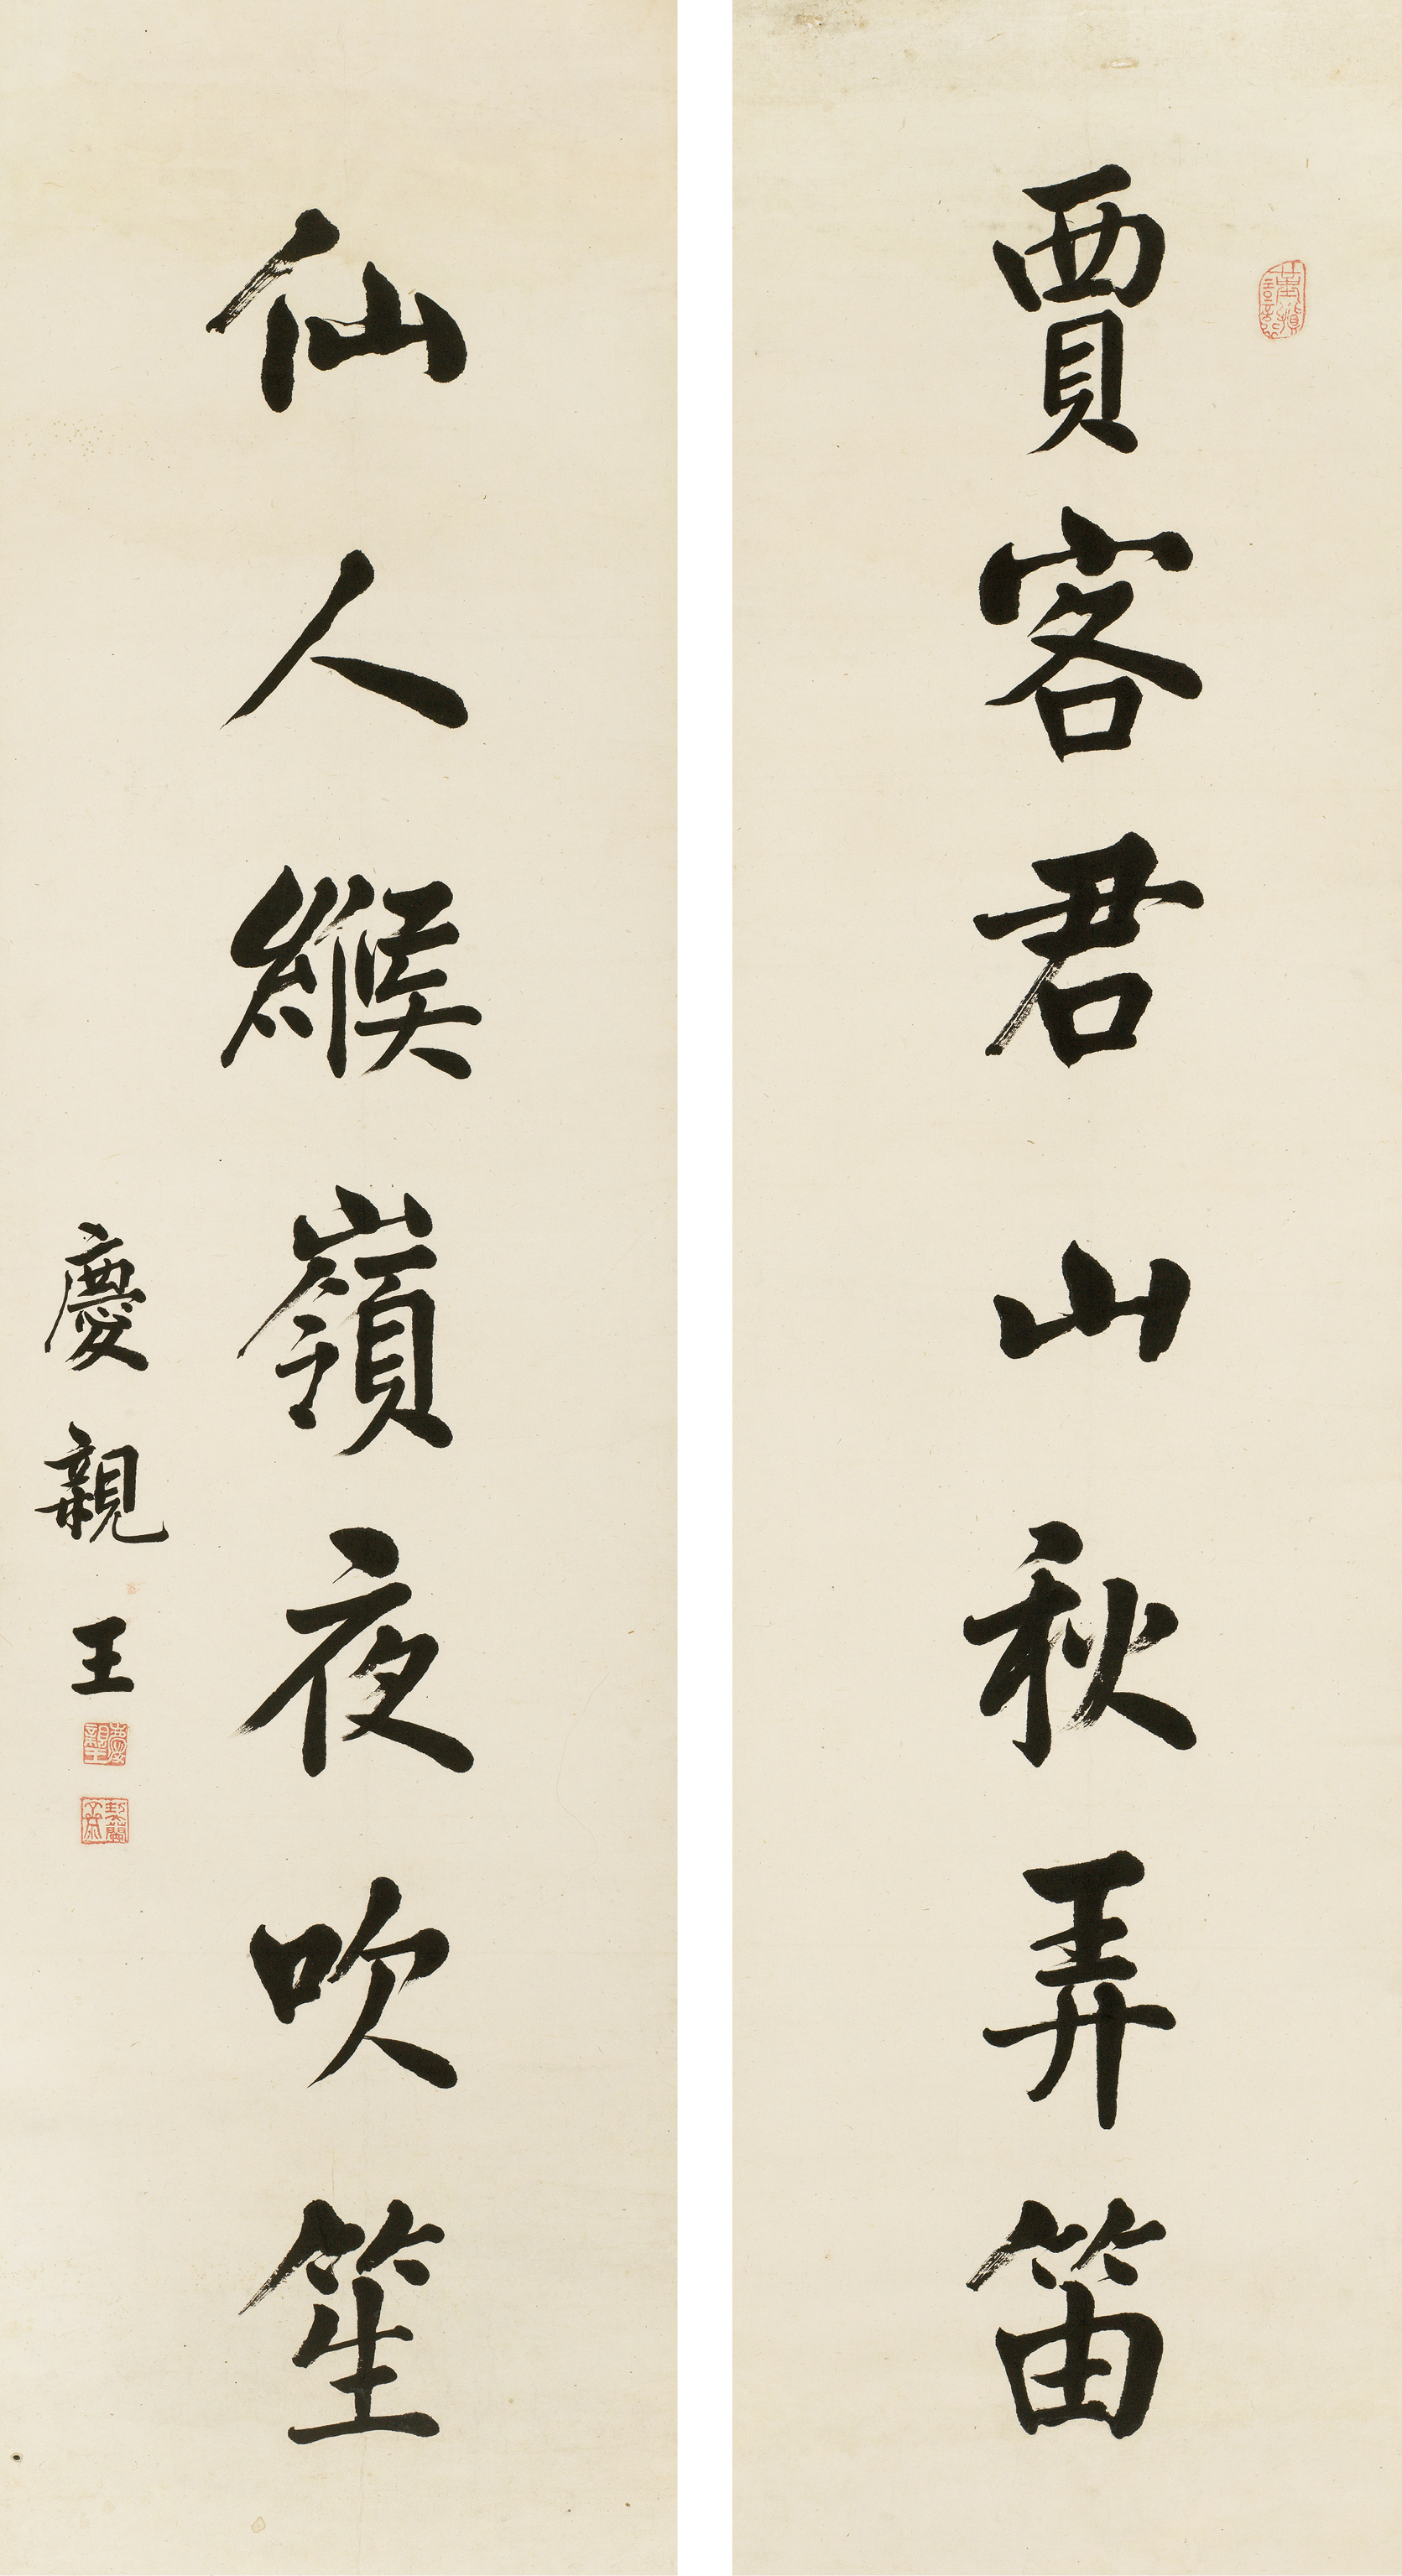 賈客君山秋弄笛
仙人緱嶺夜吹笙
慶親王
慶親王